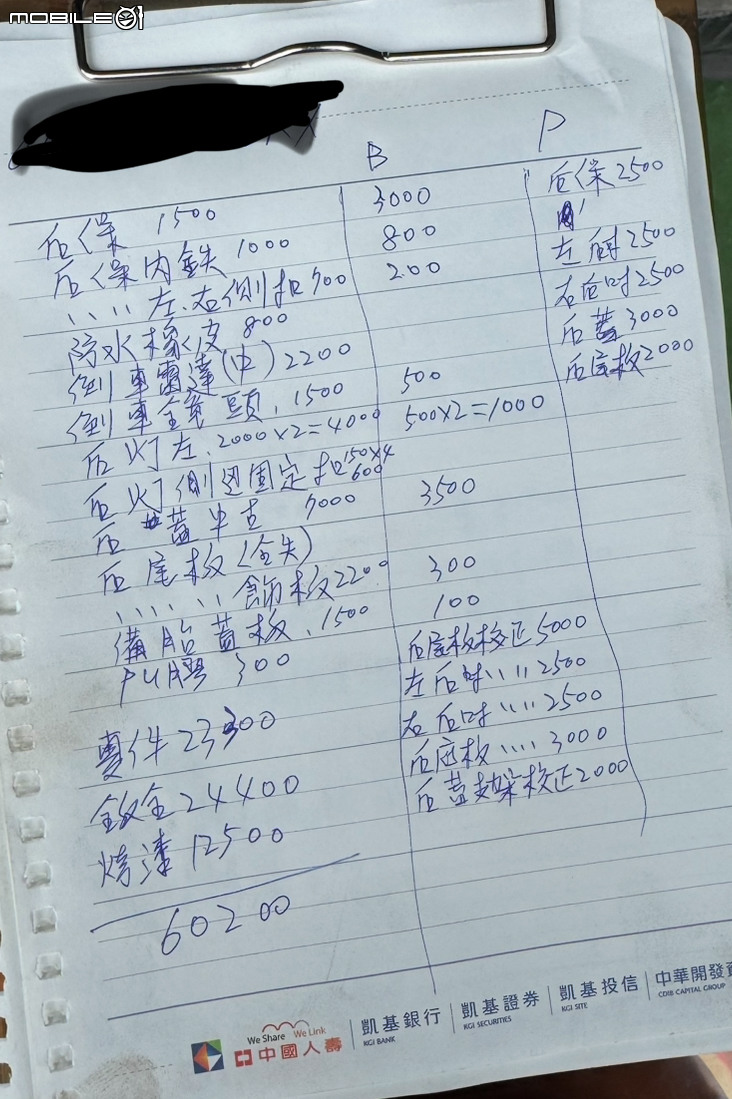 MOBILE01
B P
后保 1500 3000 后保 2500
后保內鉄 1000 800 左后叶 2500
〃〃左.右側扣 700 200 右后叶 2500
防水橡皮 800 后蓋 3000
倒車雷達(中) 2200 后尾板 2000
倒車 頭. 1500 500
后灯左. 2000x2=4000 500x2=1000
后灯側边固定扣 150x4 600
后蓋中古 7000 3500
后尾板(全失)
〃〃〃飾板 2200 300
備胎蓋板. 1500 100
PU膠 300 后尾板校正 5000
左后叶〃〃 2500
零件 23300 右后叶〃〃 2500
钣金 24400 后底板〃〃 3000
烤漆 12500 后蓋支架校正 2000
60200
We Share We Link
中國人壽
凱基銀行
KGI BANK
凱基證券
KGI SECURITIES
凱基投信
KGI SITE
中華開發資
CDIB CAPITAL GROUP